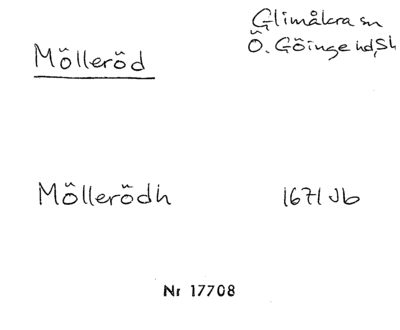 Glimåkra sn
Mölleröd
Ö. Göinge hd, Sk
Möllerödh 1671 Jb
Nr 17708